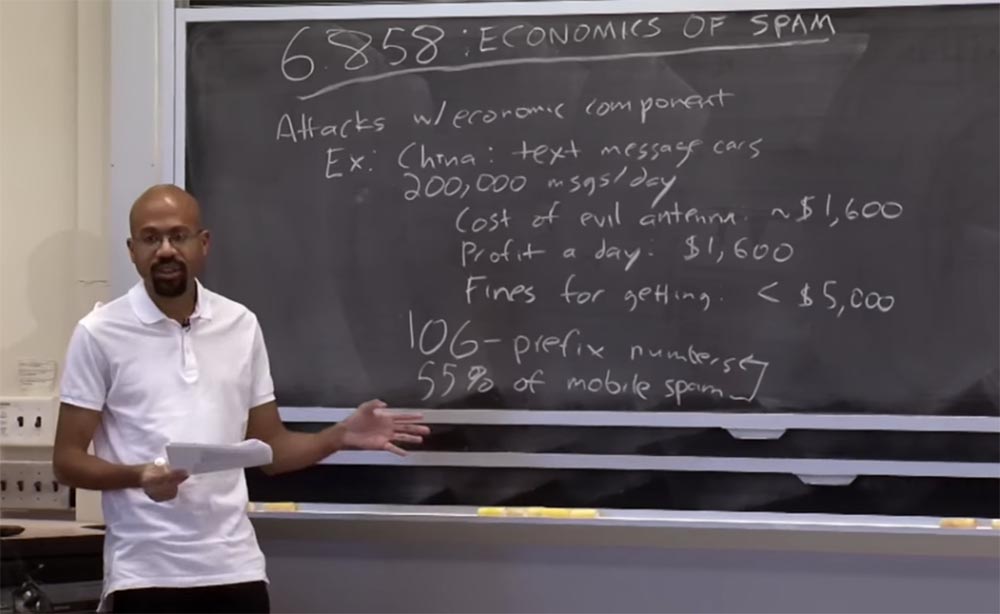 6.858: ECONOMICS OF SPAM
Attacks w/economic component
Ex: China: text message cars
200,000 msgs/day
Cost of evil antenna: ~$1,600
Profit a day: $1,600
Fines for getting: < $5,000
106-prefix numbers
55% of mobile spam